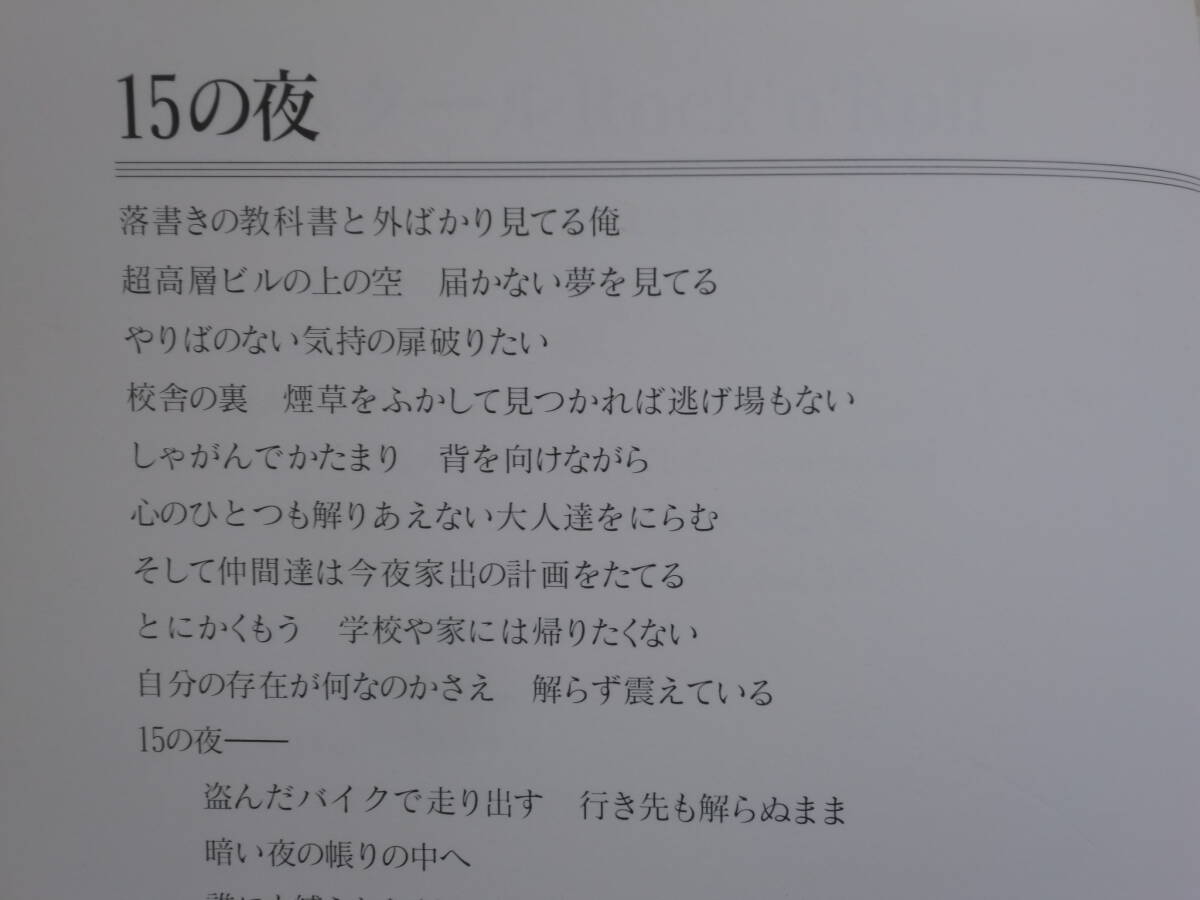 15の夜
落書きの教科書と外ばかり見てる俺
超高層ビルの上の空　届かない夢を見てる
やりばのない気持の扉破りたい
校舎の裏　煙草をふかして見つかれば逃げ場もない
しゃがんでかたまり　背を向けながら
心のひとつも解りあえない大人達をにらむ
そして仲間達は今夜家出の計画をたてる
とにかくもう　学校や家には帰りたくない
自分の存在が何なのかさえ　解らず震えている
15の夜――
盗んだバイクで走り出す　行き先も解らぬまま
暗い夜の帳りの中へ